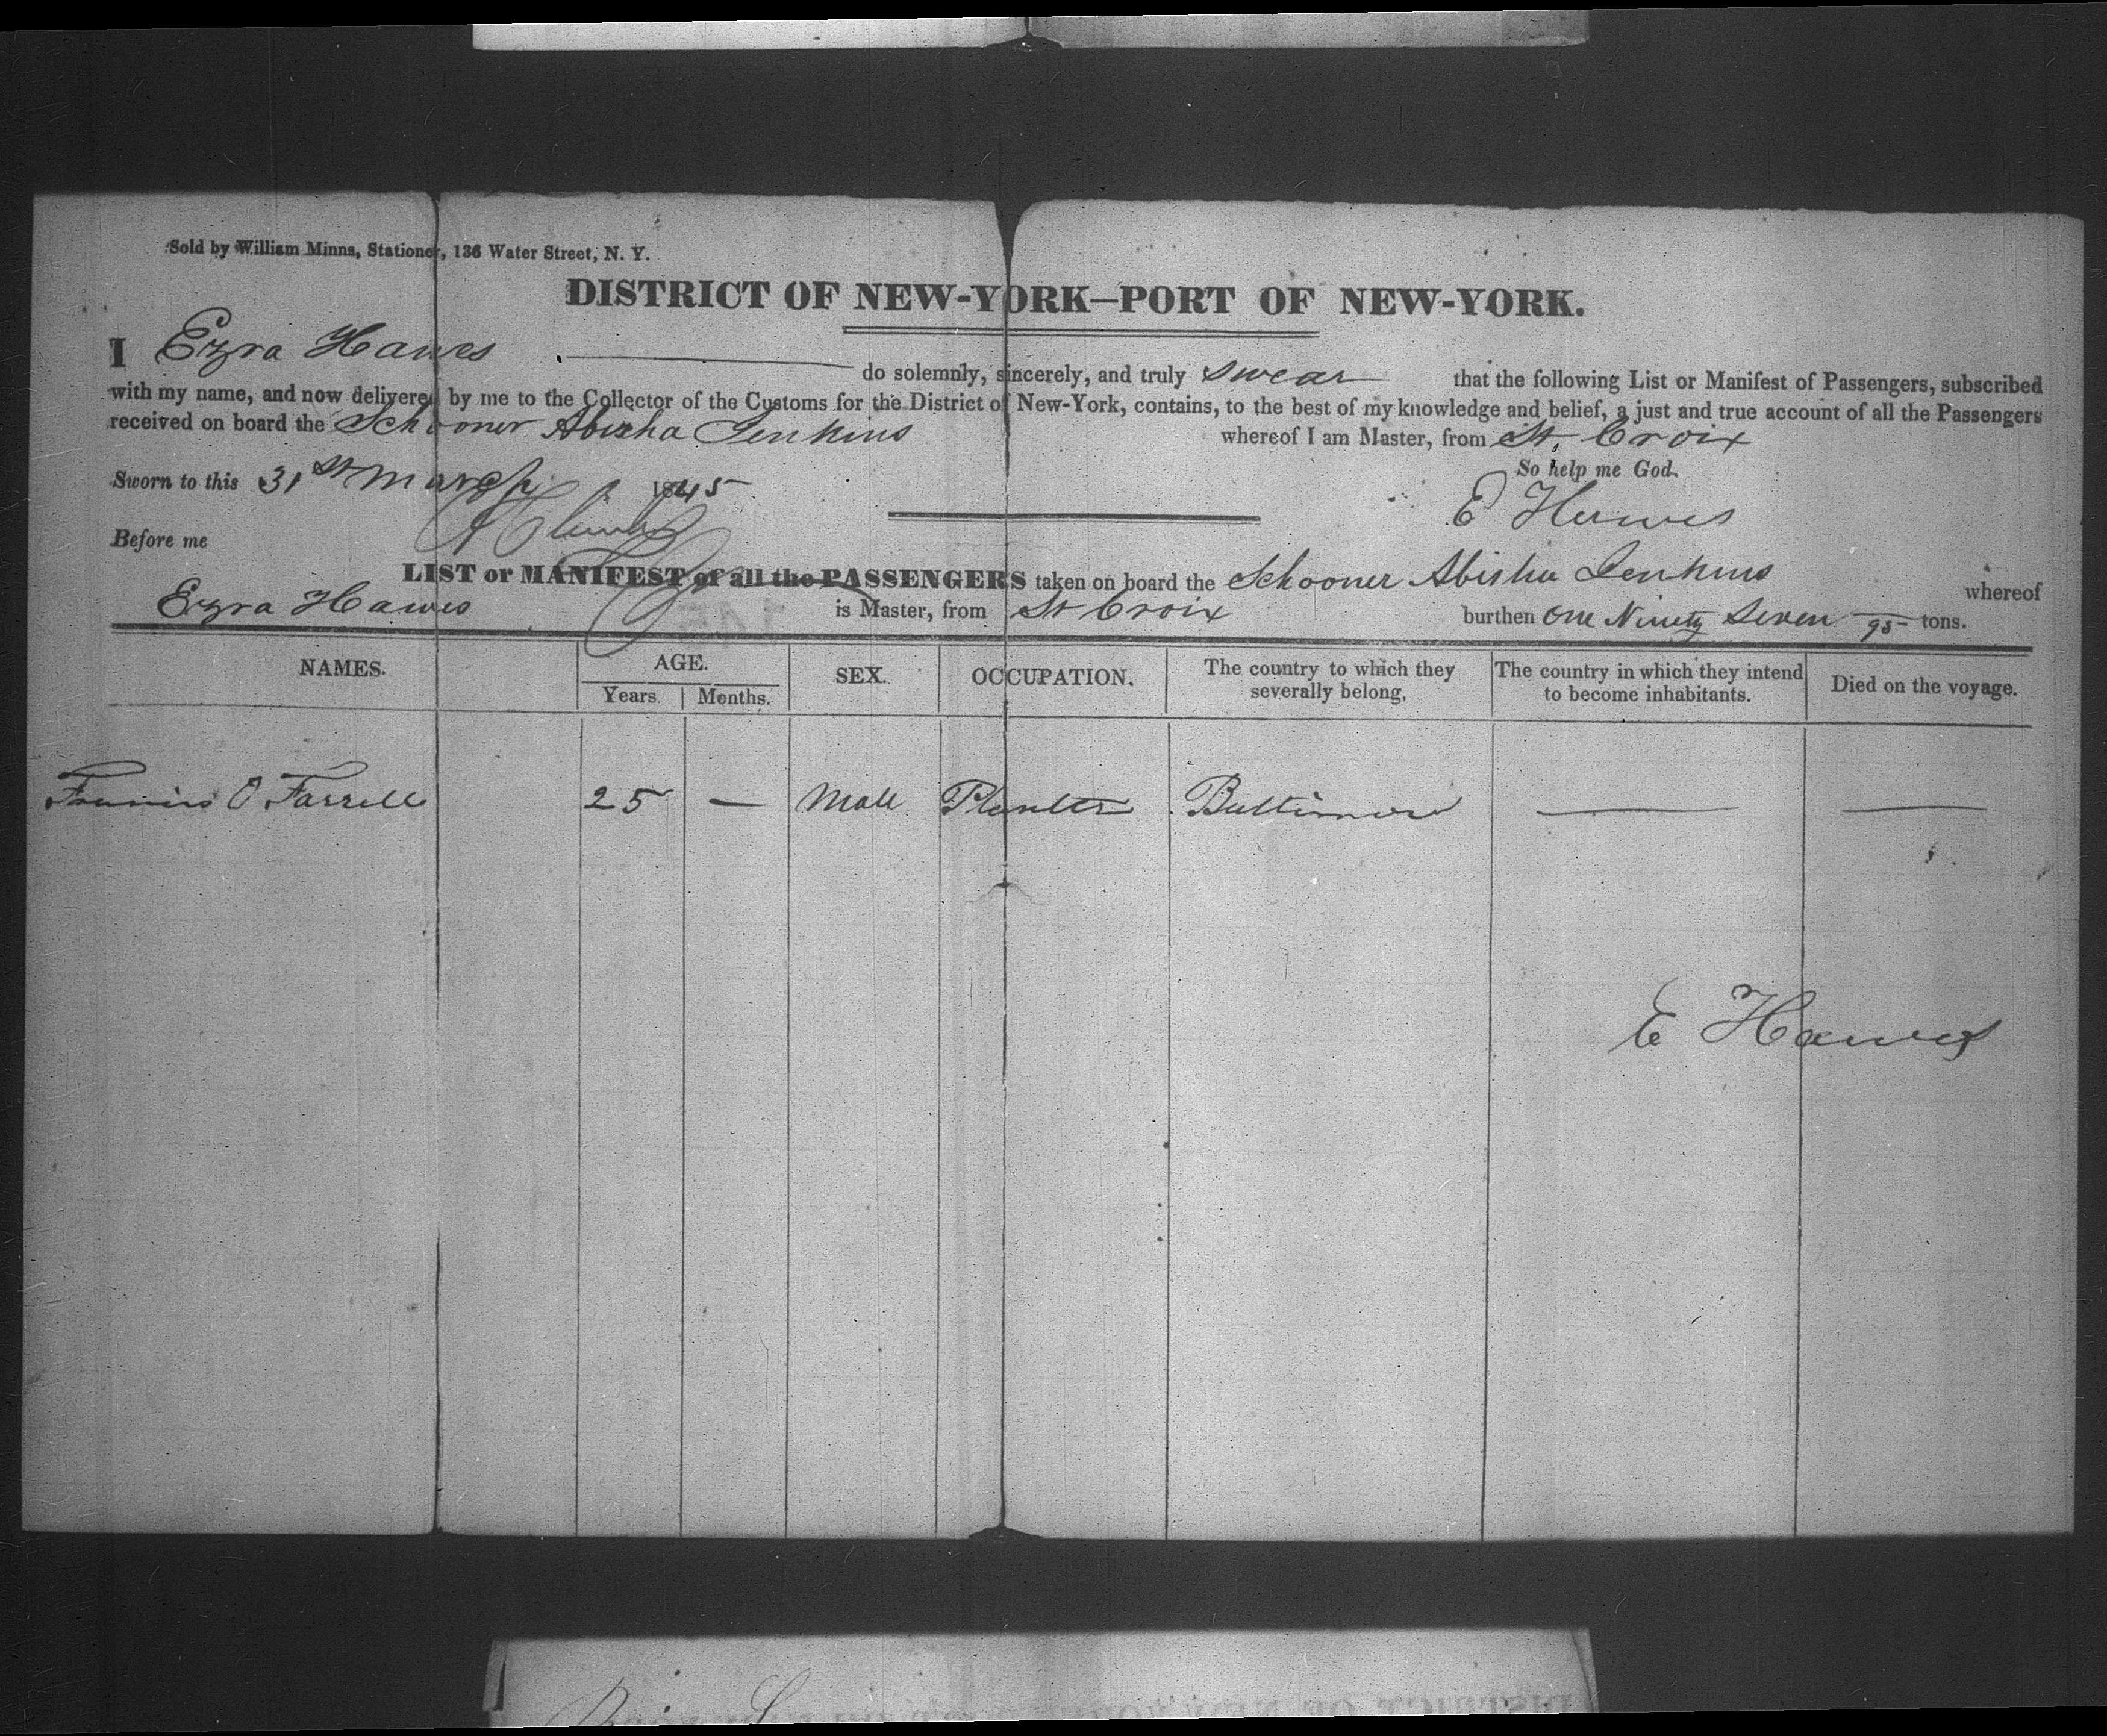 Sold by William Minns, Stationer, 136 Water Street, N. Y.
DISTRICT OF NEW-YORK—PORT OF NEW-YORK.
I Ezra Hawes do solemnly, sincerely, and truly swear that the following List or Manifest of Passengers, subscribed
with my name, and now delivered by me to the Collector of the Customs for the District of New-York, contains, to the best of my knowledge and belief, a just and true account of all the Passengers
received on board the Schooner Abisha Jenkins whereof I am Master, from St. Croix
So help me God.
Sworn to this 31st March 1845
E Hawes
Before me
LIST or MANIFEST of all the PASSENGERS taken on board the Schooner Abisha Jenkins whereof
Ezra Hawes is Master, from St Croix burthen One Ninety Seven 95 tons.
NAMES. AGE. SEX. OCCUPATION. The country to which they severally belong, The country in which they intend to become inhabitants. Died on the voyage.
Years Months.
Francis O Farrell 25 — Male Planter Baltimore — —
E Hawes